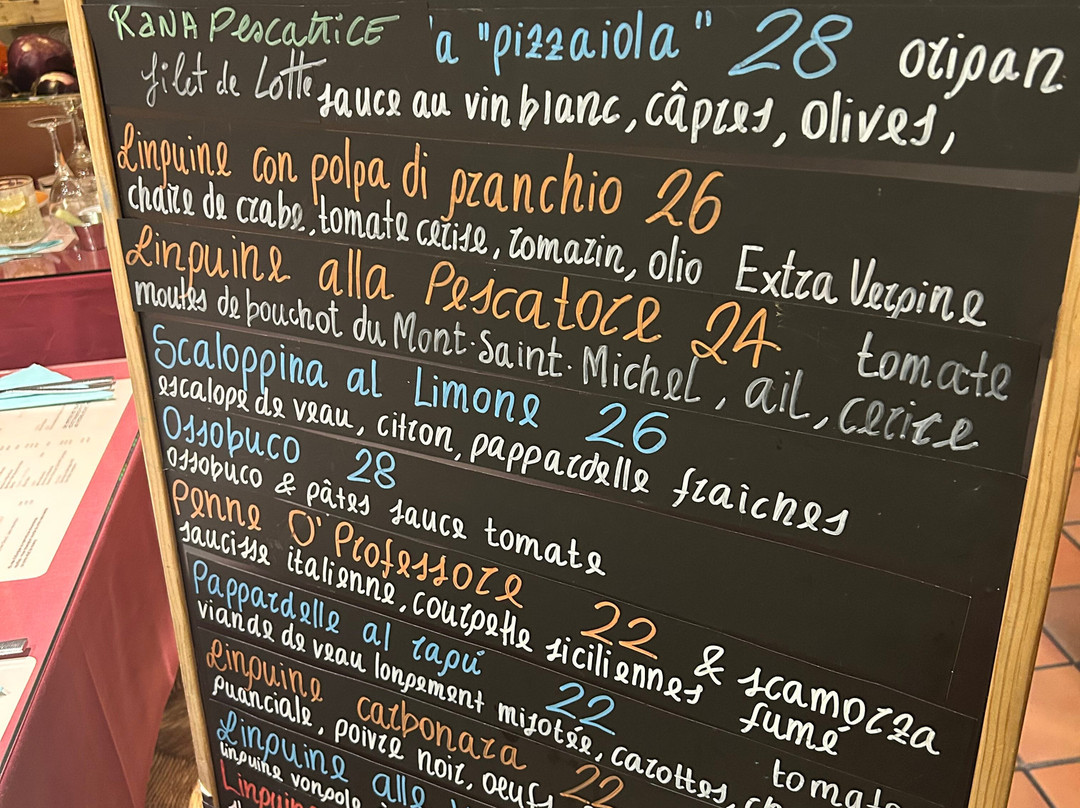 RANA PescatRiCE 'a "pizzaiola" 28 origan
filet de Lotte sauce au vin blanc, câpres, olives,
Linguine con polpa di granchio 26
chaire de crabe, tomate cerise, romarin, olio Extra Vergine
Linguine alla Pescatore 24 tomate
moules de bouchot du Mont-Saint-Michel, ail, cerice
Scaloppina al Limone 26
escalope de veau, citron, pappardelle fraîches
Ossobuco 28
ossobuco & pâtes sauce tomate
Penne O' Professore 22 & scamorza
saucisse italienne, courgette siciliennes fumé
Pappardelle al ragú 22
viande de veau longement mijotée, carottes, tomate
Linguine carbonara 22
guanciale, poivre noir, oeufs
Linguine alle
linguine vongole
Linguine